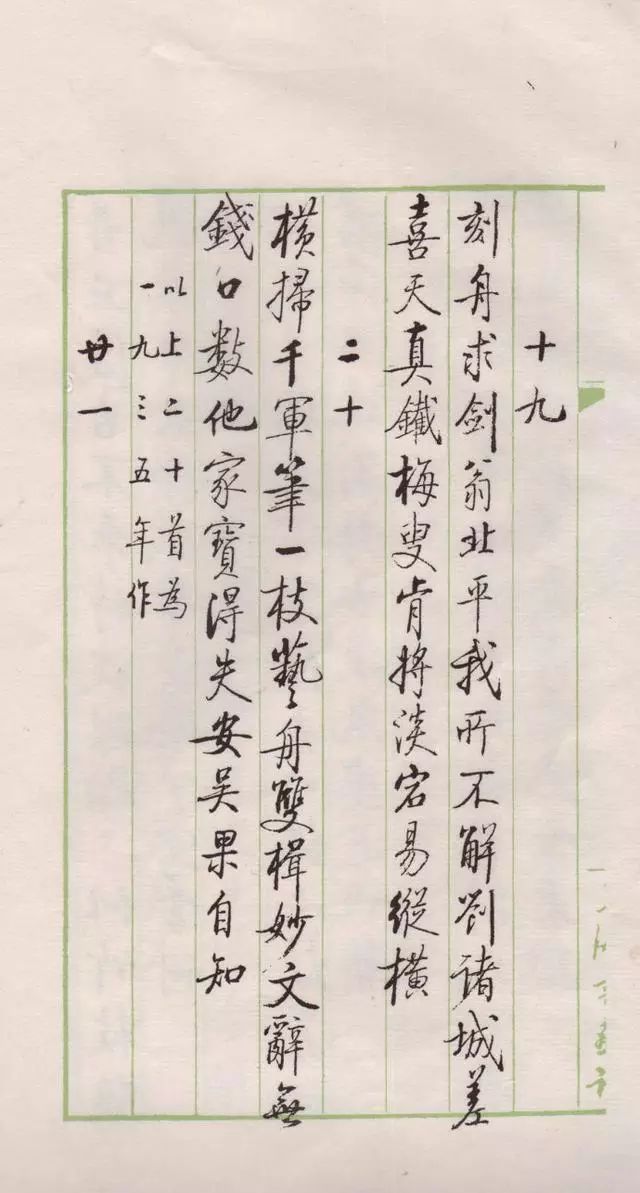 十九
刻舟求劍翁北平我所不解劉諸城差
喜天真鐵梅叟肯將淡宕易縱橫
二十
橫掃千軍筆一枝藝舟雙楫妙文辭無
錢口數他家寶得失安吴果自知
以上二十首為
一九三五年作
廿一